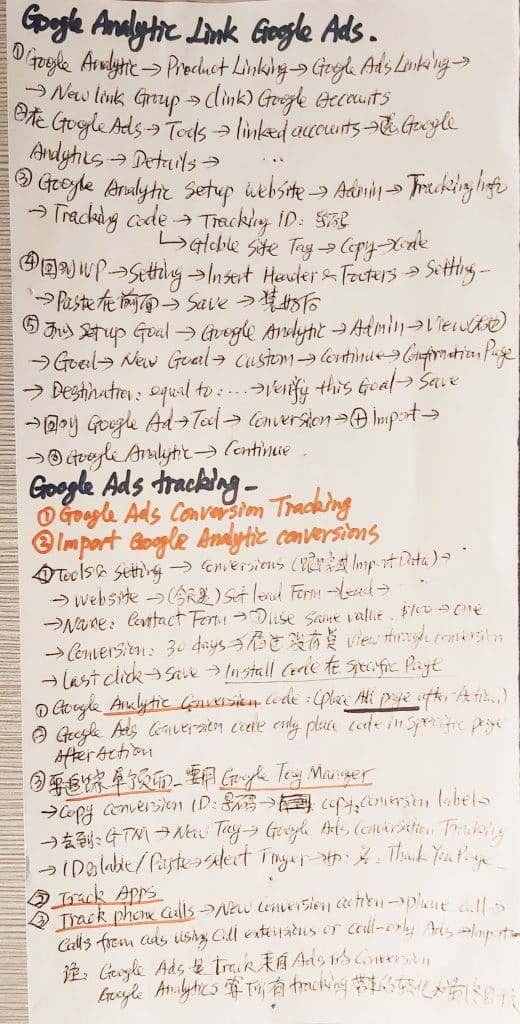 Google Analytic Link Google Ads.
① Google Analytic → Product Linking → Google Ads Linking →
→ New link Group → (link) Google Accounts
② 在 Google Ads → Tools → linked accounts → Google
Analytics → Details → ...
③ Google Analytic Setup Website → Admin → Tracking Info
→ Tracking code → Tracking ID: 号码
↳ Globle Site Tag → Copy → Code
④ 回到 WP → Setting → Insert Header & Footers → Setting
→ Paste 在前面 → Save → 装好后
⑤ Setup Goal → Google Analytic → Admin → View
→ Goal → New Goal → Custom → Continue → Confirmation Page
→ Destination: equal to: ... → Verify this Goal → Save
→ 回到 Google Ad → Tool → Conversion → ⊕ Import →
→ Google Analytic → Continue.
Google Ads tracking -
① Google Ads Conversion Tracking
② Import Google Analytic conversions
① Tools & Setting → Conversions (跟踪或 Import Data) →
→ Website → Set Lead Form → Lead →
→ Name: Contact Form → ① use same value. $100 → one
→ Conversion: 30 days → view through conversion
→ Last click → Save → Install Code 在 Specific Page
① Google Analytic Conversion code: (place All page after Action)
② Google Ads Conversion code only place code in specific page
After Action
③ 要追踪单页面 - 要用 Google Tag Manager
→ Copy conversion ID: 号码 → copy conversion label →
→ 去到: GTM → New Tag → Google Ads Conversation Tracking
→ ID & lable / Paste → select Triger → Thank You Page
② Track Apps
③ Track phone calls → New conversion action → phone call →
Calls from ads using call extensions or call-only Ads → Import
注: Google Ads 是 Track 来自 Ads 的 Conversion
Google Analytics 所有 tracking 带来的转化